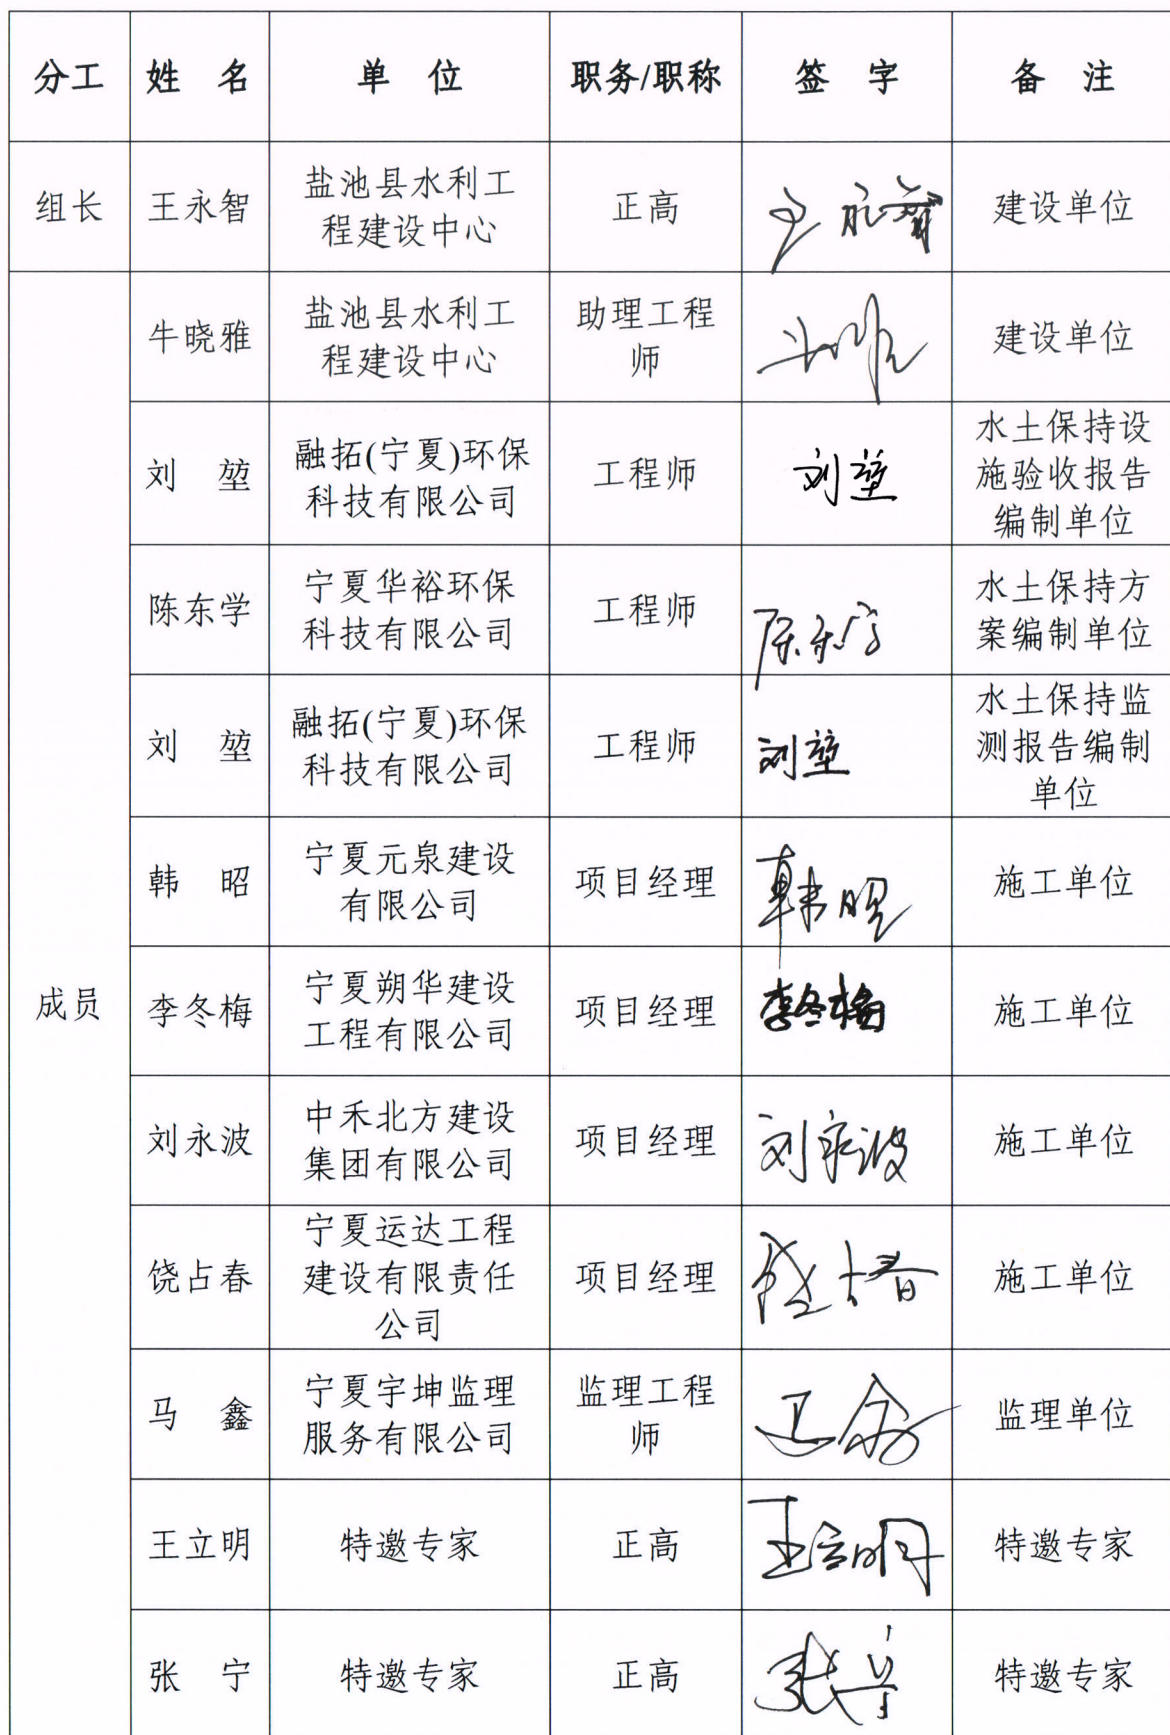 分工 姓 名 单 位 职务/职称 签 字 备 注
组长 王永智 盐池县水利工程建设中心 正高 王永智 建设单位
成员
牛晓雅 盐池县水利工程建设中心 助理工程师 建设单位
刘 堃 融拓(宁夏)环保科技有限公司 工程师 刘堃 水土保持设施验收报告编制单位
陈东学 宁夏华裕环保科技有限公司 工程师 陈东学 水土保持方案编制单位
刘 堃 融拓(宁夏)环保科技有限公司 工程师 刘堃 水土保持监测报告编制单位
韩 昭 宁夏元泉建设有限公司 项目经理 韩昭 施工单位
李冬梅 宁夏朔华建设工程有限公司 项目经理 李冬梅 施工单位
刘永波 中禾北方建设集团有限公司 项目经理 刘永波 施工单位
饶占春 宁夏运达工程建设有限责任公司 项目经理 饶占春 施工单位
马 鑫 宁夏宇坤监理服务有限公司 监理工程师 马鑫 监理单位
王立明 特邀专家 正高 王立明 特邀专家
张 宁 特邀专家 正高 张宁 特邀专家